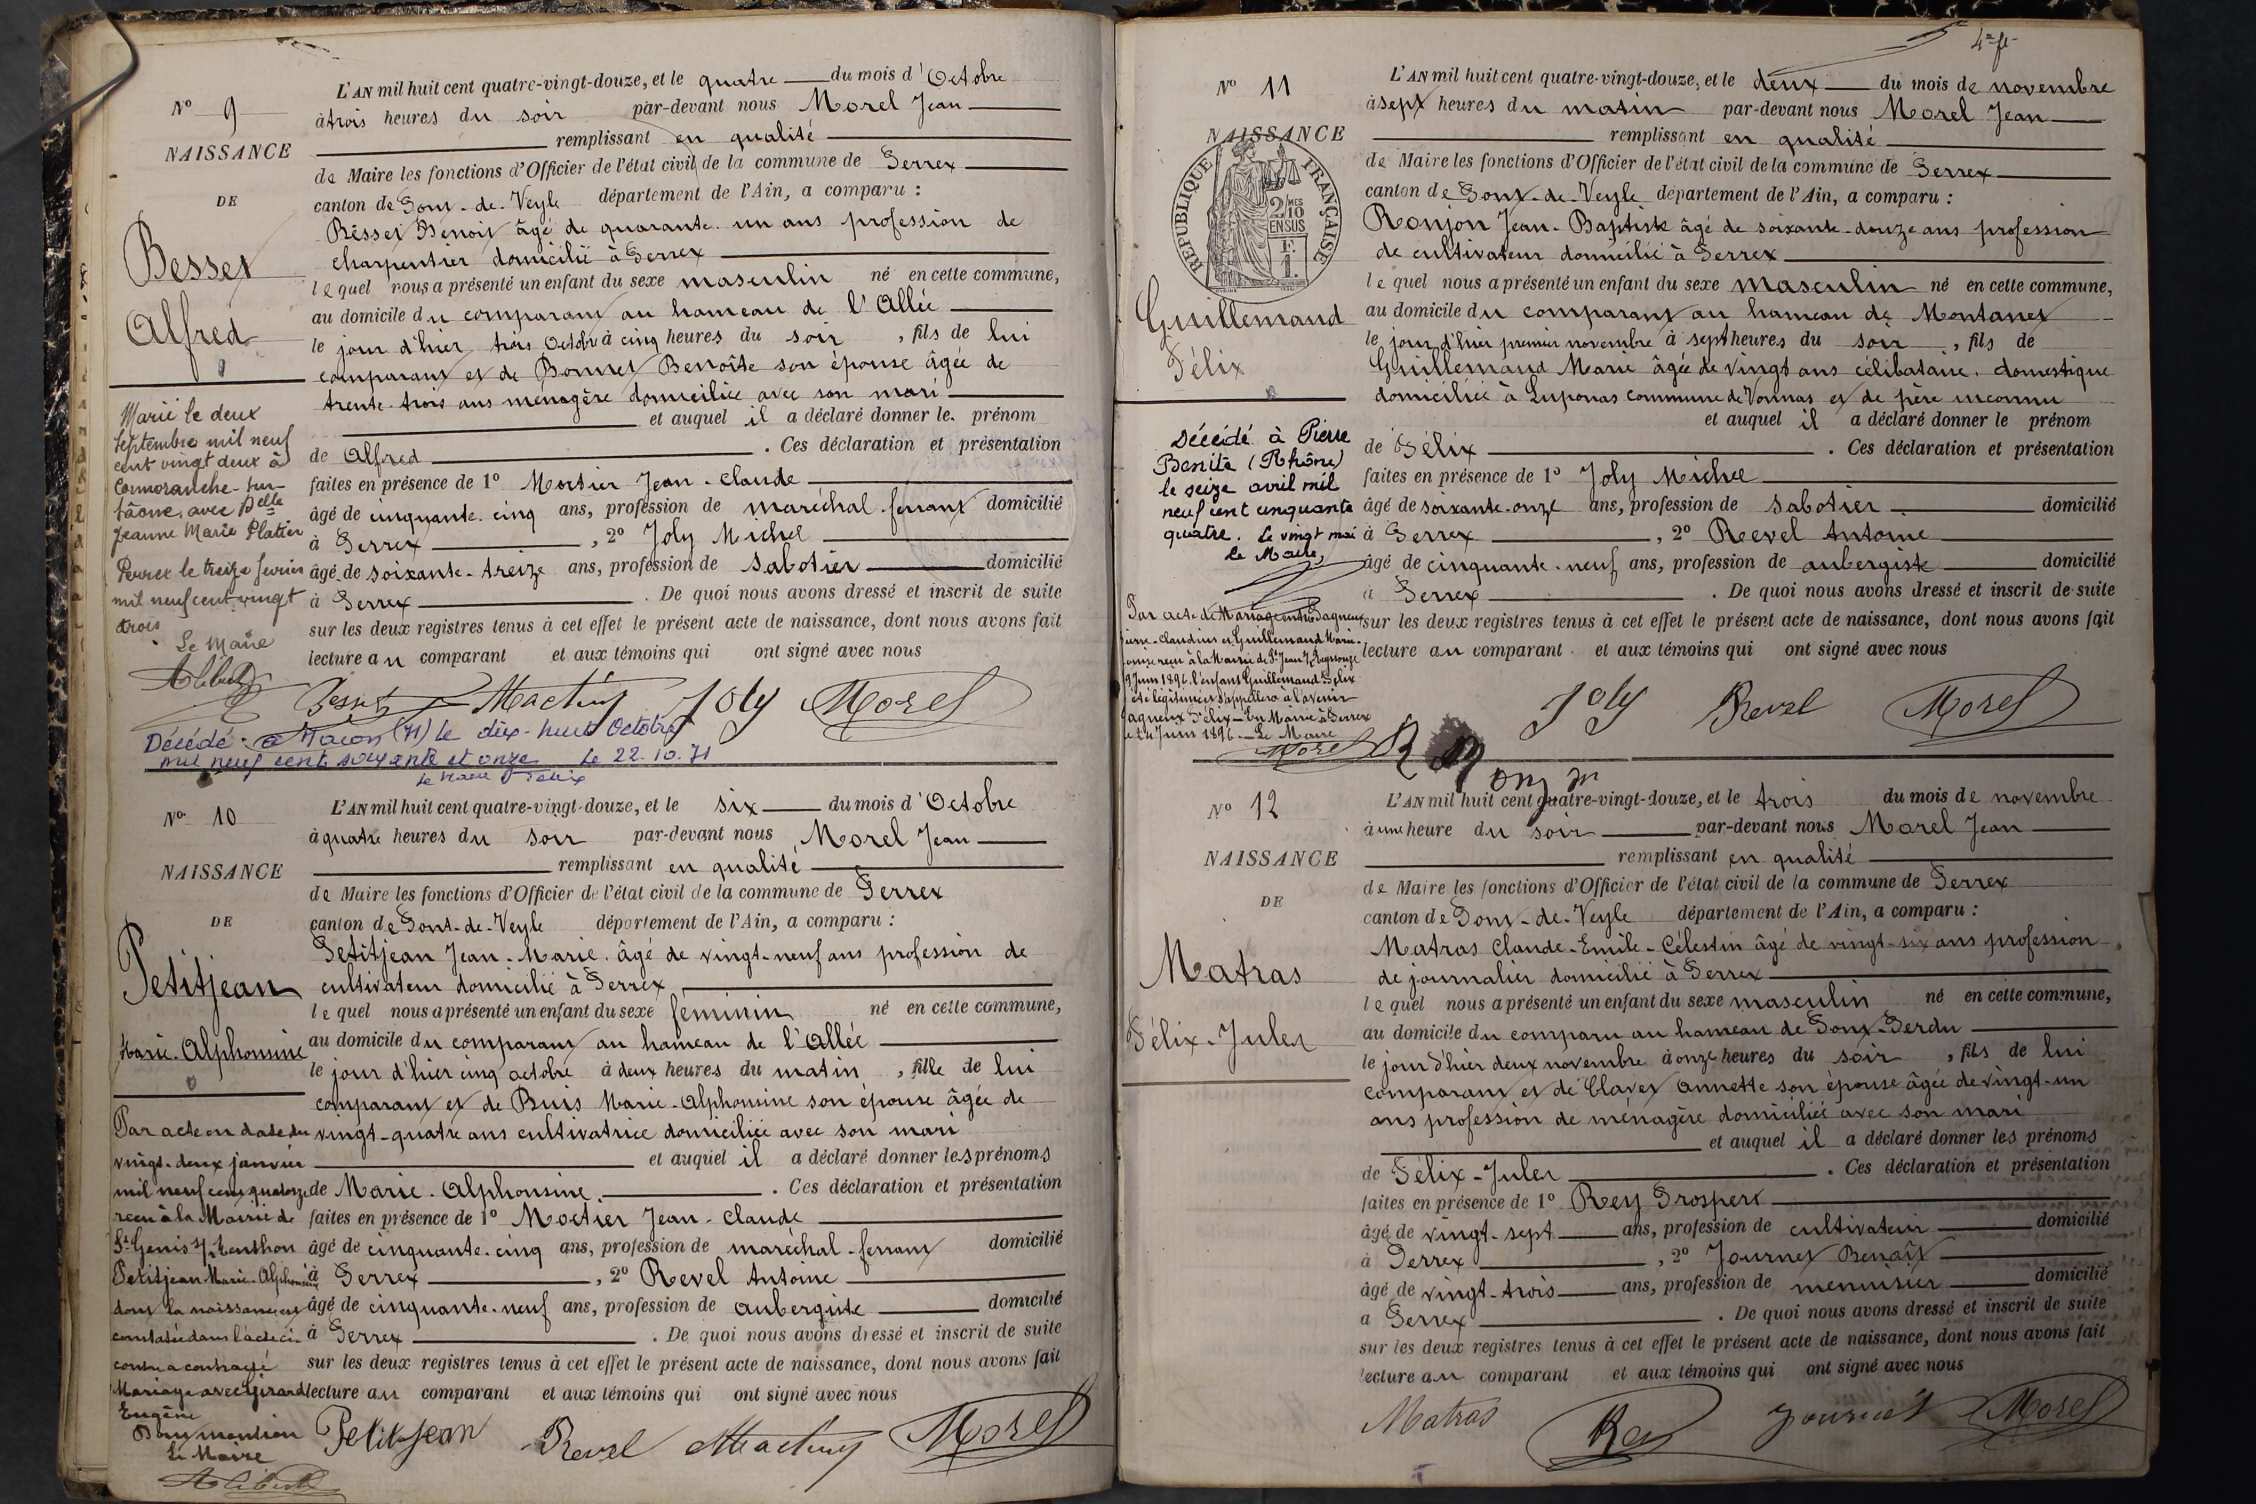 N° 9
NAISSANCE
DE
Besset
Alfred
Marié le deux
Septembre mil neuf
cent vingt deux à
Cormoranche-sur-
Sâone, avec Delle
Jeanne Marie Platier
Perrex le treize fevrier
mil neuf cent vingt
trois
Le Maire
L'AN mil huit cent quatre-vingt-douze, et le quatre du mois d'Octobre
à trois heures du soir par-devant nous Morel Jean
remplissant en qualité
de Maire les fonctions d'Officier de l'état civil de la commune de Perrex
canton de Pont-de-Veyle département de l'Ain, a comparu :
Besset Benoit âgé de quarante-un ans profession de
charpentier domicilié à Perrex
lequel nous a présenté un enfant du sexe masculin né en cette commune,
au domicile du comparant au hameau de l'Allée
le jour d'hier trois Octobre à cinq heures du soir, fils de lui
comparant et de Bonnet Benoîte son épouse âgée de
trente-trois ans ménagère domiciliée avec son mari
et auquel il a déclaré donner le prénom
de Alfred. Ces déclaration et présentation
faites en présence de 1° Moctier Jean-Claude
âgé de cinquante-cinq ans, profession de maréchal-ferrant domicilié
à Perrex, 2° Joly Michel
âgé de soixante-treize ans, profession de sabotier domicilié
à Perrex. De quoi nous avons dressé et inscrit de suite
sur les deux registres tenus à cet effet le présent acte de naissance, dont nous avons fait
lecture au comparant et aux témoins qui ont signé avec nous
Joly Morel
Décédé à Macon (71) le dix-huit Octobre
mil neuf cent soixante et onze le 22.10.71
le Maire
N° 10
NAISSANCE
DE
Petitjean
Marie-Alphonsine
Par acte en date du
vingt-deux janvier
mil neuf cent quatorze
reçu à la Mairie de
St Genis s/ Menthon
Petitjean Marie-Alphonsine
dont la naissance est
constatée dans l'acte ci-
contre a contracté
Mariage avec Girard
Eugène
Pour mention
Le Maire
L'AN mil huit cent quatre-vingt-douze, et le six du mois d'Octobre
à quatre heures du soir par-devant nous Morel Jean
remplissant en qualité
de Maire les fonctions d'Officier de l'état civil de la commune de Perrex
canton de Pont-de-Veyle département de l'Ain, a comparu :
Petitjean Jean-Marie âgé de vingt-neuf ans profession de
cultivateur domicilié à Perrex
lequel nous a présenté un enfant du sexe féminin né en cette commune,
au domicile du comparant au hameau de l'Allée
le jour d'hier cinq octobre à deux heures du matin, fille de lui
comparant et de Buis Marie-Alphonsine son épouse âgée de
vingt-quatre ans cultivatrice domiciliée avec son mari
et auquel il a déclaré donner les prénoms
de Marie-Alphonsine. Ces déclaration et présentation
faites en présence de 1° Moctier Jean-Claude
âgé de cinquante-cinq ans, profession de maréchal-ferrant domicilié
à Perrex, 2° Revel Antoine
âgé de cinquante-neuf ans, profession de aubergiste domicilié
à Perrex. De quoi nous avons dressé et inscrit de suite
sur les deux registres tenus à cet effet le présent acte de naissance, dont nous avons fait
lecture au comparant et aux témoins qui ont signé avec nous
Petitjean Revel Morel
N° 11
NAISSANCE
RÉPUBLIQUE FRANÇAISE
2/10 MES
EN SUS
Guillemaud
Félix
Décédé à Pierre
Bénite (Rhône)
le seize avril mil
neuf cent cinquante
quatre. Le vingt mai
Le Maire,
Par acte de Mariage entre Pagneux
Pierre-Claudius et Guillemaud Marie-
reçu à la Mairie de St Jean s/ Reyssouze
9 Juin 1896 l'enfant Guillemaud Félix
été légitimé et s'appellera à l'avenir
Pagneux Félix - En Mairie à Perrex
le 24 Juin 1896 - Le Maire
Morel
L'AN mil huit cent quatre-vingt-douze, et le deux du mois de novembre
à sept heures du matin par-devant nous Morel Jean
remplissant en qualité
de Maire les fonctions d'Officier de l'état civil de la commune de Perrex
canton de Pont-de-Veyle département de l'Ain, a comparu :
Ronjon Jean-Baptiste âgé de soixante-douze ans profession
de cultivateur domicilié à Perrex
lequel nous a présenté un enfant du sexe masculin né en cette commune,
au domicile du comparant au hameau de Montanet
le jour d'hier premier novembre à sept heures du soir, fils de
Guillemaud Marie âgée de vingt ans célibataire domestique
domiciliée à Luponas commune de Vonnas et de père inconnu
et auquel il a déclaré donner le prénom
de Félix. Ces déclaration et présentation
faites en présence de 1° Joly Michel
âgé de soixante-onze ans, profession de sabotier domicilié
à Perrex, 2° Revel Antoine
âgé de cinquante-neuf ans, profession de aubergiste domicilié
à Perrex. De quoi nous avons dressé et inscrit de suite
sur les deux registres tenus à cet effet le présent acte de naissance, dont nous avons fait
lecture au comparant et aux témoins qui ont signé avec nous
Joly Revel Morel
N° 12
NAISSANCE
DE
Matras
Félix-Jules
L'AN mil huit cent quatre-vingt-douze, et le trois du mois de novembre
à une heure du soir par-devant nous Morel Jean
remplissant en qualité
de Maire les fonctions d'Officier de l'état civil de la commune de Perrex
canton de Pont-de-Veyle département de l'Ain, a comparu :
Matras Claude-Emile-Célestin âgé de vingt-six ans profession
de journalier domicilié à Perrex
lequel nous a présenté un enfant du sexe masculin né en cette commune,
au domicile du comparu au hameau de Pont-Perdu
le jour d'hier deux novembre à onze heures du soir, fils de lui
comparant et de Clavet Annette son épouse âgée de vingt-un
ans profession de ménagère domiciliée avec son mari
et auquel il a déclaré donner les prénoms
de Félix-Jules. Ces déclaration et présentation
faites en présence de 1° Rey Prosper
âgé de vingt-sept ans, profession de cultivateur domicilié
à Perrex, 2° Journet Benoît
âgé de vingt-trois ans, profession de menuisier domicilié
a Perrex. De quoi nous avons dressé et inscrit de suite
sur les deux registres tenus à cet effet le présent acte de naissance, dont nous avons fait
lecture au comparant et aux témoins qui ont signé avec nous
Matras Rey Journet Morel